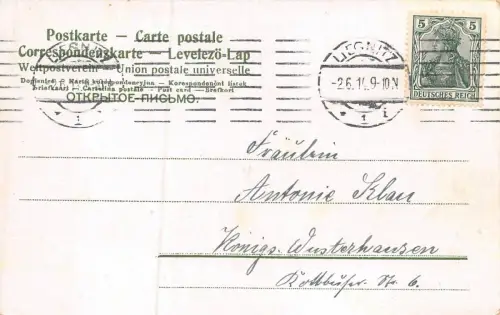 Postkarte – Carte postale
Correspondenzkarte – Levelező-Lap
Weltpostverein – Union postale universelle
Dopisnice – Karta korespondencyjna – Korespondenční lístek
Briefkaart – Cartolina postale – Post card – Brefkort
ОТКРЫТОЕ ПИСЬМО.
LIEGNITZ
1
LIEGNITZ
-2.6.14.9-10N
* 1 i
5 5
DEUTSCHES REICH
Fräulein
Antonie Klau
Königs-Wusterhausen
Kottbuser-Str. 6.